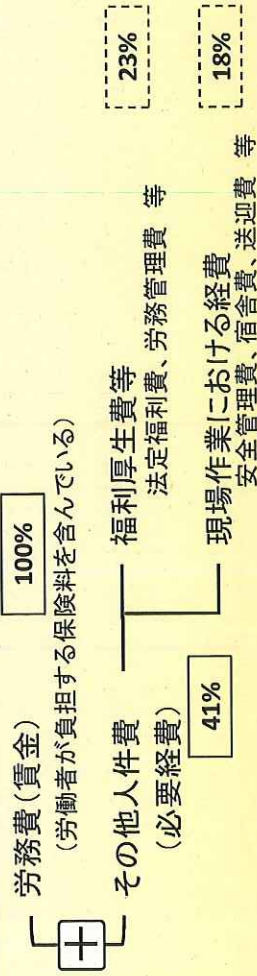 労務費(賃金) 100%
(労働者が負担する保険料を含んでいる)
+
その他人件費
(必要経費)
41%
福利厚生費等 23%
法定福利費、労務管理費 等
現場作業における経費 18%
安全管理費、宿舎費、送迎費 等